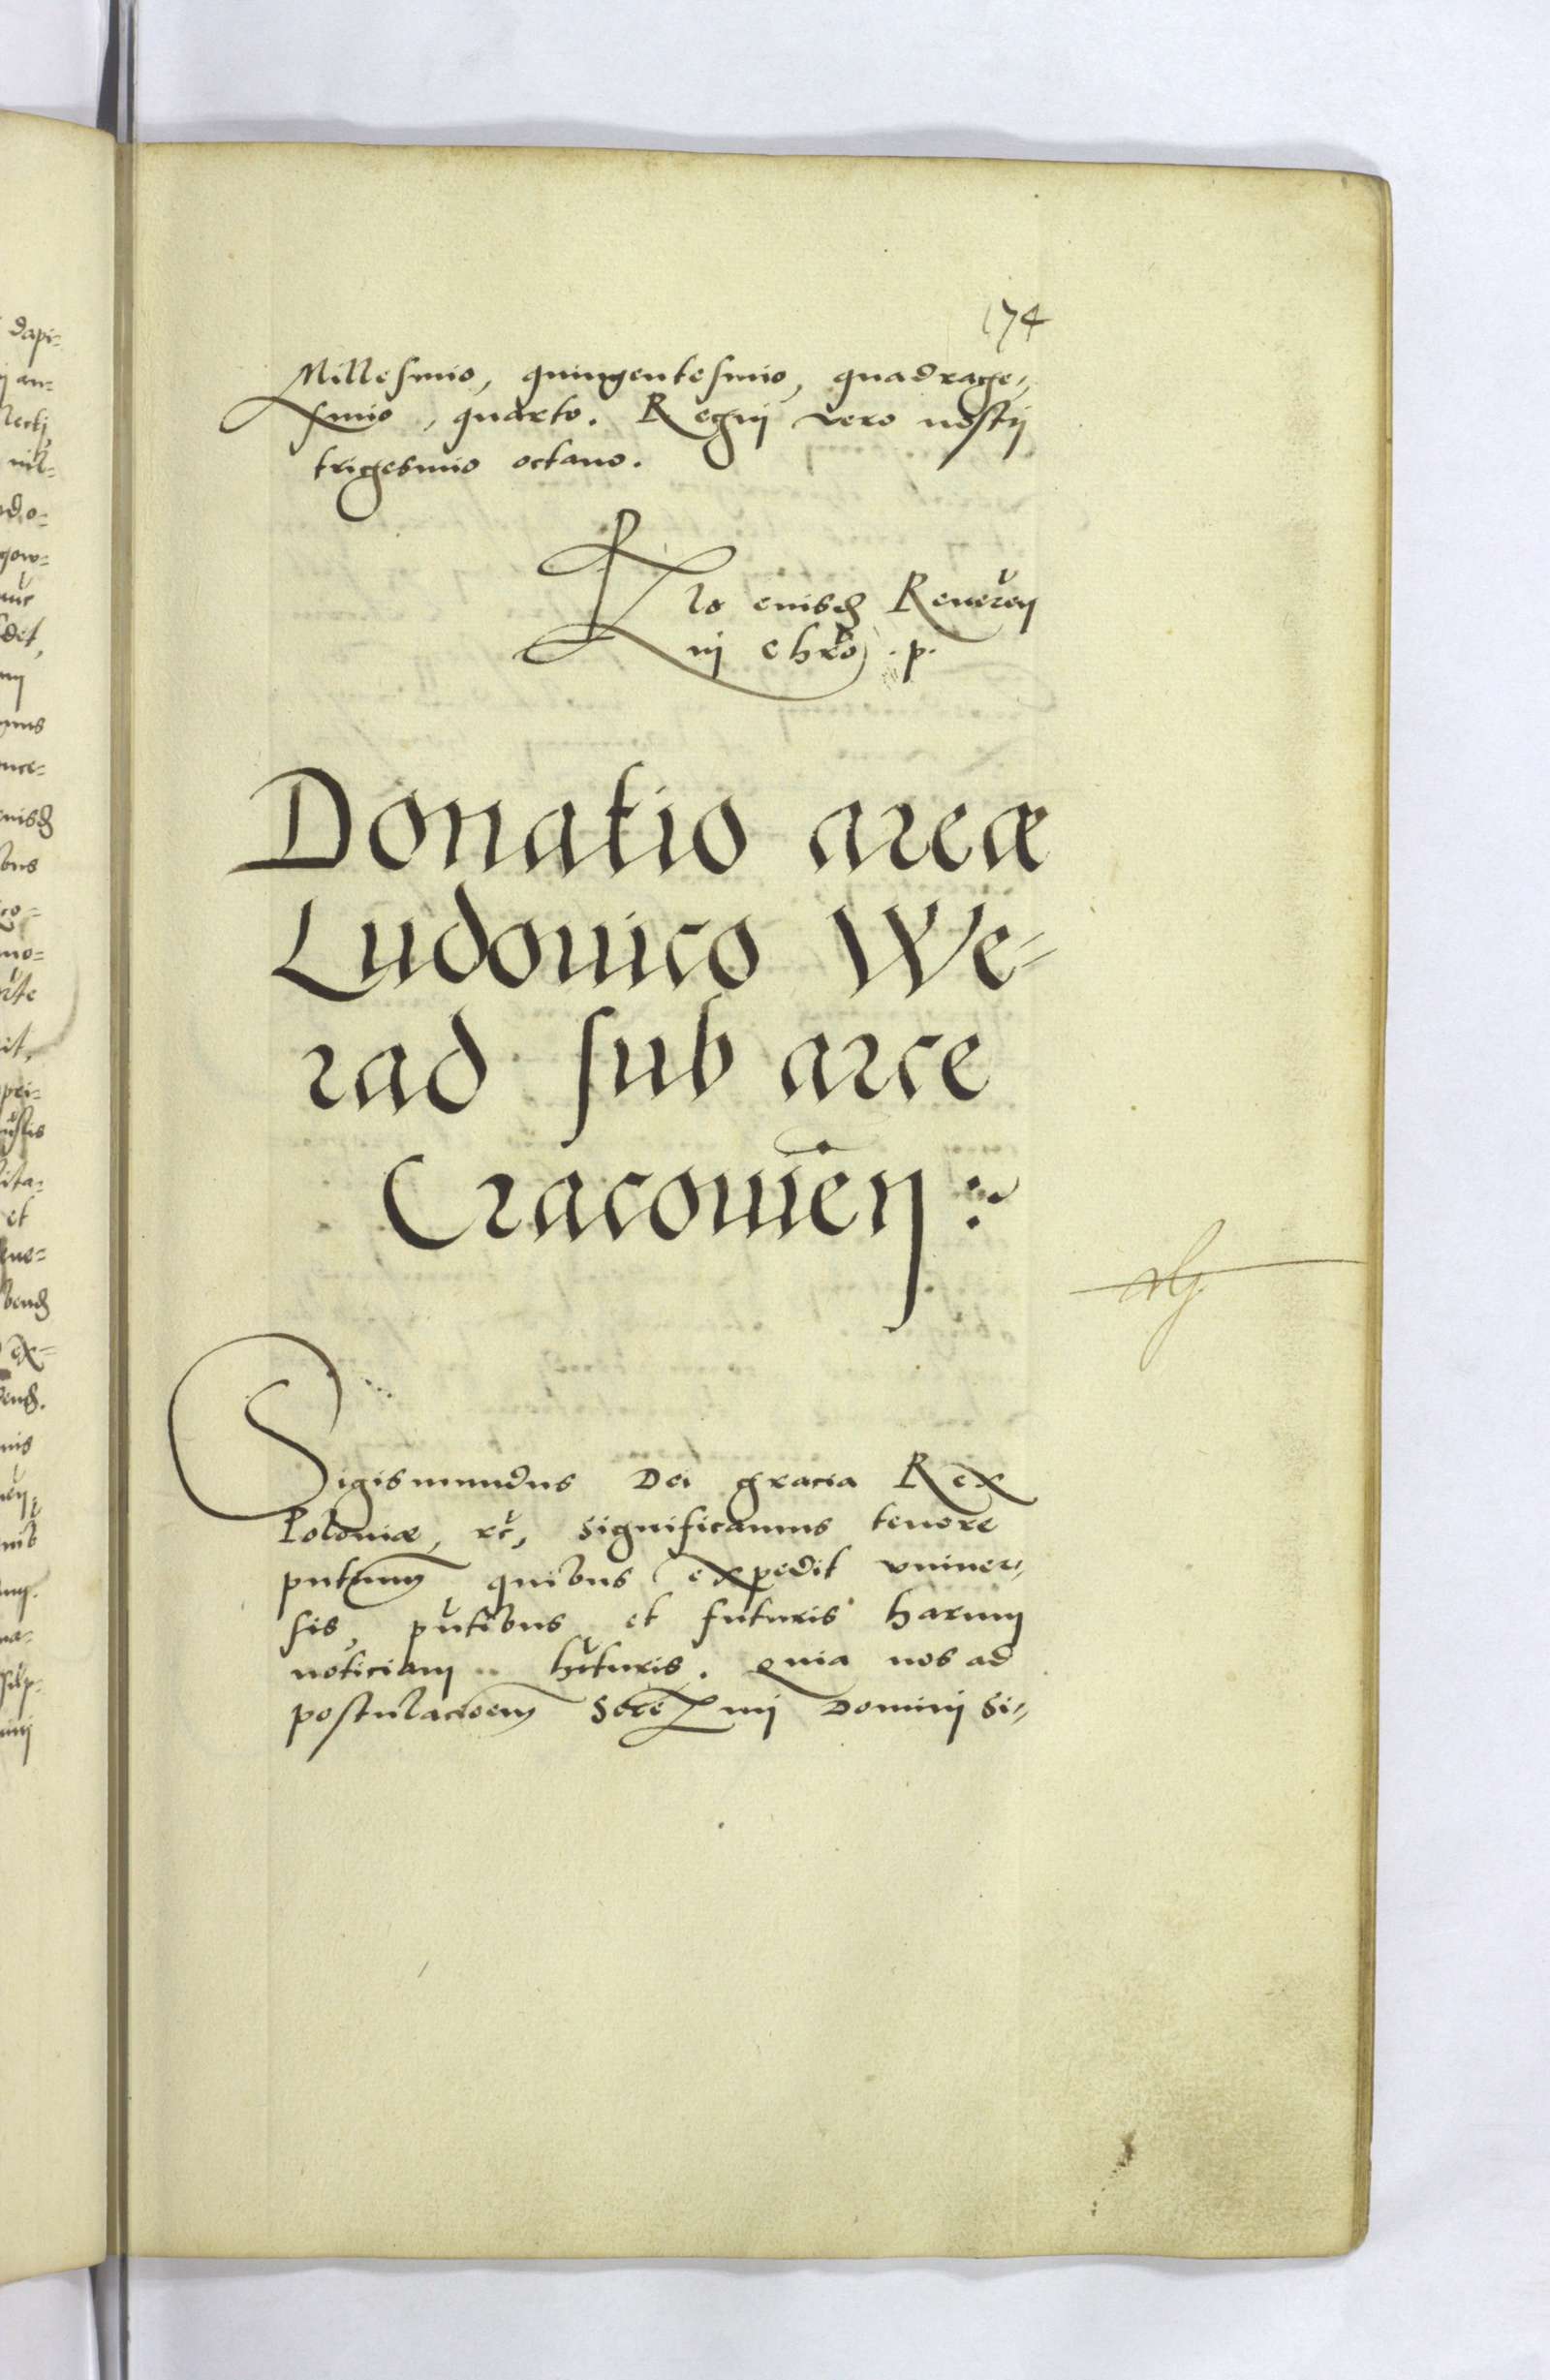 174
Millesimo, quingentesimo, quadrage-
simo, quarto. Regni vero nostri
trigesimo octauo.
R̃lo eiusdẽ Reueren
in Chr̃o .p.
Donatio areæ
Ludouico We-
rad sub arce
Cracouien̄
Sigismundus Dei gracia Rex
Poloniæ, etc̃, Significamus tenore
pntium quibus expedit vniuer-
sis, pñtibus et futuris harum
noticiam hituris. Quia nos ad
postulacioem Sere mi Domini Si-